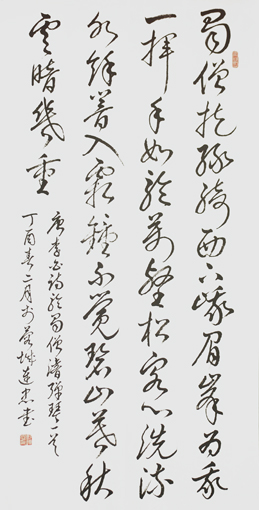 蜀僧抱綠綺西下峨眉峯為我
一揮手如聽萬壑松客心洗流
水餘響入霜鐘不覺碧山暮秋
雲暗幾重
唐李白詩聽蜀僧濬彈琴一首
丁酉春二月於蓉城書